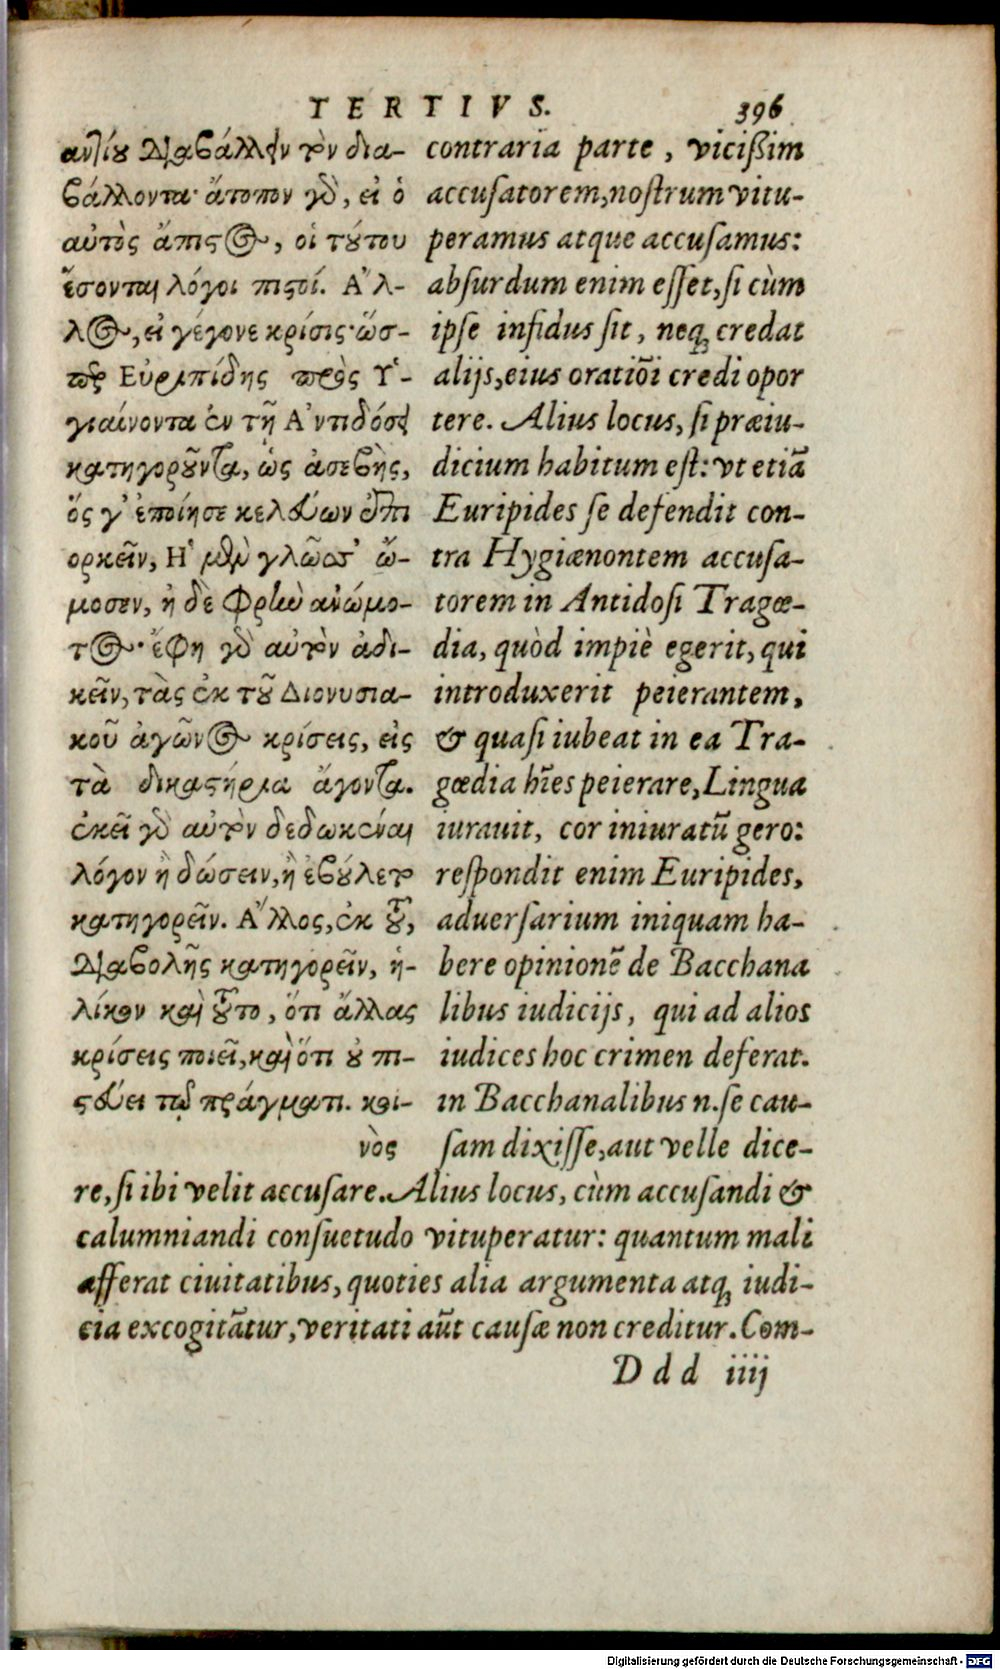 TERTIVS. 396
αντίου διαβάλλειν τὸν δια-
βάλλοντα· ἄτοπον γὰρ, εἰ ὁ
αὐτὸς ἄπιστος, οἱ τούτου
ἔσονται λόγοι πιστοί. Ἀλ-
λος, εἰ γέγονε κρίσις· ὥσ-
περ Εὐριπίδης πρὸς Ὑ-
γιαίνοντα ἐν τῇ Ἀντιδόσει
κατηγοροῦντα, ὡς ἀσεβὴς,
ὅς γ' ἐποίησε κελεύων ἐπι
ορκεῖν, Ἡ μὲν γλῶσσ' ὤ-
μοσεν, ἡ δὲ φρὴν ἀνώμο-
τος· ἔφη γὰρ αὐτὸν ἀδι-
κεῖν, τὰς ἐκ τοῦ Διονυσια-
κοῦ ἀγῶνος κρίσεις, εἰς
τὰ δικαστήρια ἄγοντα.
ἐκεῖ γὰρ αὐτὸν δεδωκέναι
λόγον ἢ δώσειν, ἢ ἐβούλετο
κατηγορεῖν. Ἄλλος, ἐκ τοῦ,
διαβολῆς κατηγορεῖν, ἡ-
λίκον καὶ τοῦτο, ὅτι ἄλλας
κρίσεις ποιεῖ, καὶ ὅτι οὐ πι-
στεύει τῷ πράγματι. κοι-
νὸς
contraria parte, vicißim
accusatorem, nostrum vitu-
peramus atque accusamus:
absurdum enim esset, si cùm
ipse infidus sit, neq; credat
alijs, eius oratiōi credi opor
tere. Alius locus, si præiu-
dicium habitum est: vt etiã
Euripides se defendit con-
tra Hygiænontem accusa-
torem in Antidosi Tragœ-
dia, quòd impiè egerit, qui
introduxerit peierantem,
& quasi iubeat in ea Tra-
gœdia hīes peierare, Lingua
iurauit, cor iniuratū gero:
respondit enim Euripides,
aduersarium iniquam ha-
bere opinionē de Bacchana
libus iudicijs, qui ad alios
iudices hoc crimen deferat.
in Bacchanalibus n. se cau-
sam dixisse, aut velle dice-
re, si ibi velit accusare. Alius locus, cùm accusandi &
calumniandi consuetudo vituperatur: quantum mali
afferat ciuitatibus, quoties alia argumenta atq; iudi-
cia excogitãtur, veritati aūt causæ non creditur. Com-
Ddd iiij
Digitalisierung gefördert durch die Deutsche Forschungsgemeinschaft - DFG